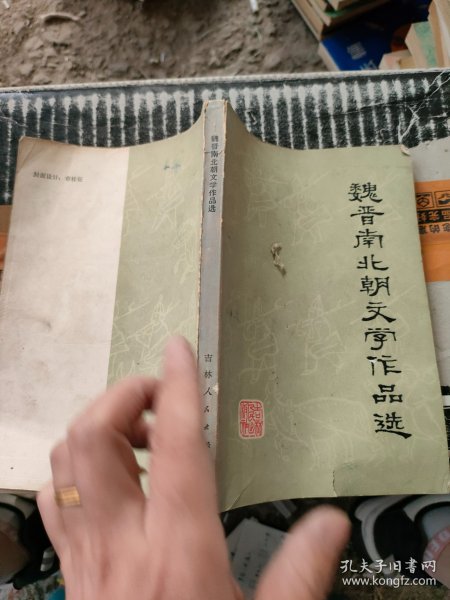 魏晋南北朝文学作品选
魏晋南北朝文学作品选
吉林人民出
封面设计：
孔夫子旧书网
www.kongfz.com